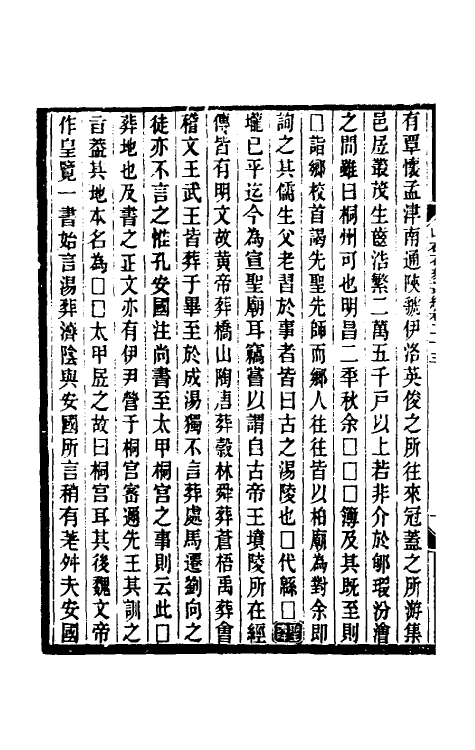 有覃懷孟津南通陝虢伊洛英俊之所往來冠蓋之所游集
邑居叢茂生齒浩繁二萬五千戶以上若非介於郇瑕汾澮
之間雖曰桐州可也明昌二秊秋余□□□簿及其既至則
□詣鄉校首謁先聖先師而鄉人往往皆以柏廟為對余即
詢之其儒生父老習於事者皆曰古之湯陵也□代縣□
壠已平迄今為宣聖廟耳竊嘗以謂自古帝王墳陵所在經
傳皆有明文故黃帝葬橋山陶唐葬穀林舜葬蒼梧禹葬會
稽文王武王皆葬于畢至於成湯獨不言葬處馬遷劉向之
徒亦不言之惟孔安國注尚書至太甲桐宮之事則云此□
葬地也及書之正文亦有伊尹營于桐宮密邇先王其訓之
言蓋其地本名為□□太甲居之故曰桐宮耳其後魏文帝
作皇覽一書始言湯葬濟陰與安國所言稍有差舛夫安國